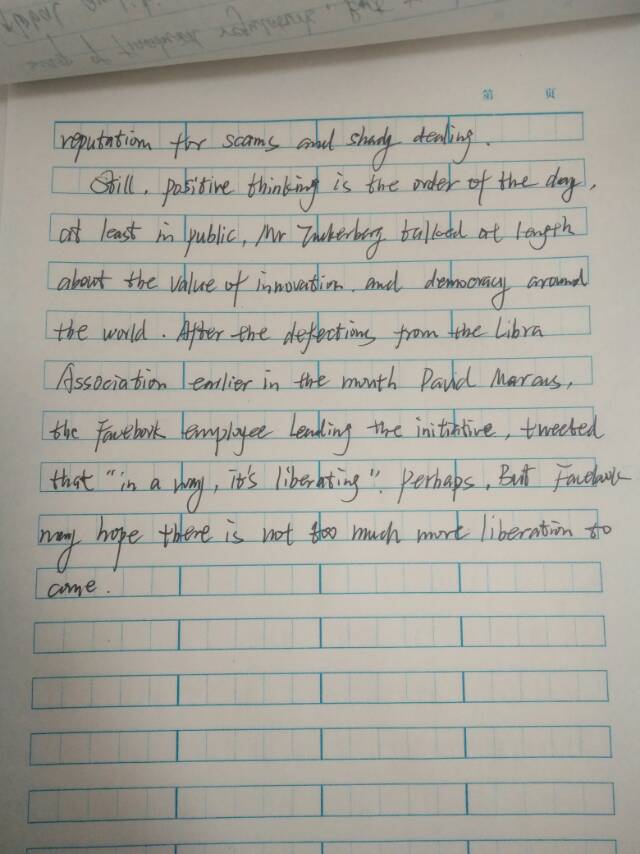 第 页
reputation for scams and shady dealing.
Still, positive thinking is the order of the day,
at least in public, Mr Zuckerberg talked at length
about the value of innovation. and democracy around
the world. After the defections from the Libra
Association earlier in the month David Marcus,
the Facebook employee leading the initiative, tweeted
that "in a way, it's liberating". Perhaps, But Facebook
may hope there is not too much more liberation to
come.